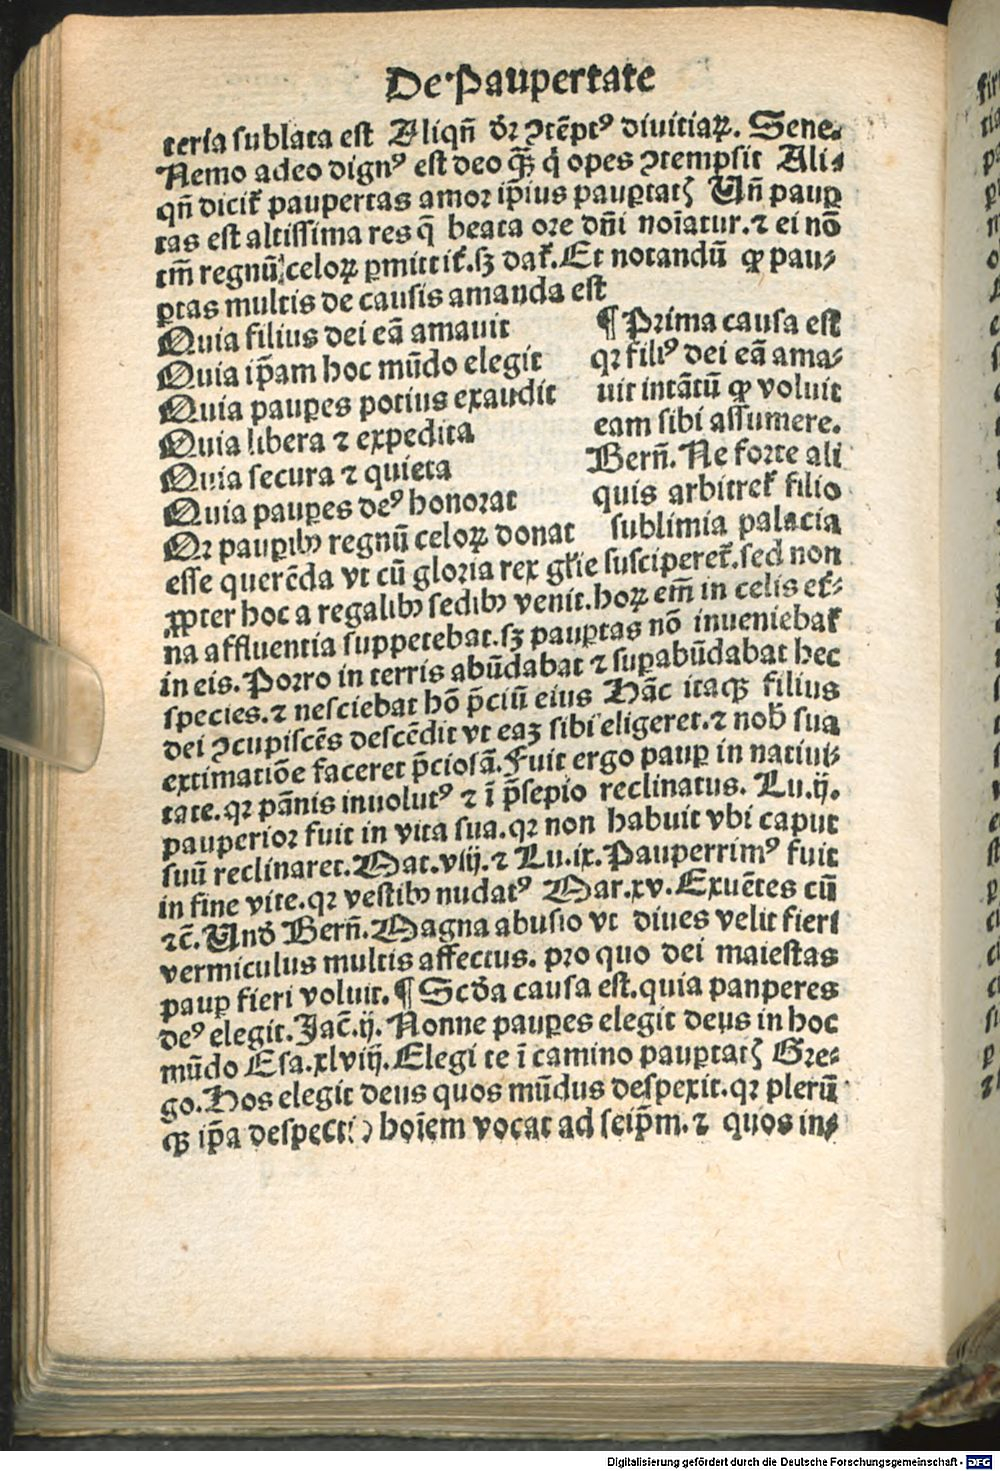 De Paupertate
teria sublata est Aliqn̄ dr̄ ↄtēptꝰ diuitiaꝝ. Sene.
Nemo adeo dignꝰ est deo qꝫ̄ q̇ opes ↄtempsit Ali⸗
qn̄ dicit᷑ paupertas amor ip̄ius pauꝑtatꝭ Un̄ pauꝑ
tas est altissima res q̄ beata ore dn̄i noīatur. ⁊ ei nō
tm̄ regnū celoꝝ ꝓmittit᷑. sꝫ dat᷑. Et notandū ꝙ pau⸗
ꝑtas multis de causis amanda est
Quia filius dei eā amauit
Quia ip̄am hoc mūdo elegit
Quia pauꝑes potius exaudit
Quia libera ⁊ expedita
Quia secura ⁊ quieta
Quia pauꝑes deꝰ honorat
Qꝛ pauꝑibꝰ regnū celoꝝ donat
¶ Prima causa est
qꝛ filiꝰ dei eā ama⸗
uit intātū ꝙ voluit
eam sibi assumere.
Bern̄. Ne forte ali
quis arbitret᷑ filio
sublimia palacia
esse querēda vt cū gloria rex gl̄ie susciperet᷑. sed non
ꝓpter hoc a regalibꝰ sedibꝰ venit. hoꝝ em̄ in celis et᷑⸗
na affluentia suppetebat. sꝫ pauꝑtas nō inueniebat᷑
in eis. Porro in terris abūdabat ⁊ suꝑabūdabat hec
species. ⁊ nesciebat hō p̄ciū eius Hāc itaqꝫ filius
dei ↄcupiscēs descēdit vt eaꝫ sibi eligeret. ⁊ nob̄ sua
extimatiōe faceret p̄ciosā. Fuit ergo pauꝑ in natiui⸗
tate. qꝛ pānis inuolutꝰ ⁊ ī p̄sepio reclinatus. Lu. ij.
pauperior fuit in vita sua. qꝛ non habuit vbi caput
suū reclinaret. Mat. viij. ⁊ Lu. ix. Pauperrimꝰ fuit
in fine vite. qꝛ vestibꝰ nudatꝰ Mar. xv. Exuētes cū
⁊c̄. Unḋ Bern̄. Magna abusio vt diues velit fieri
vermiculus multis affectus. pro quo dei maiestas
pauꝑ fieri voluit. ¶ Scḋa causa est. quia panperes
deꝰ elegit. Jac̄. ij. Nonne pauꝑes elegit deus in hoc
mūdo Esa. xlviij. Elegi te ī camino pauꝑtatꝭ Gre⸗
go. Hos elegit deus quos mūdus despexit. qꝛ plerū
qꝫ ip̄a despecti ↄ hoīem vocat ad seip̄m. ⁊ quos in⸗
Digitalisierung gefördert durch die Deutsche Forschungsgemeinschaft - DFG